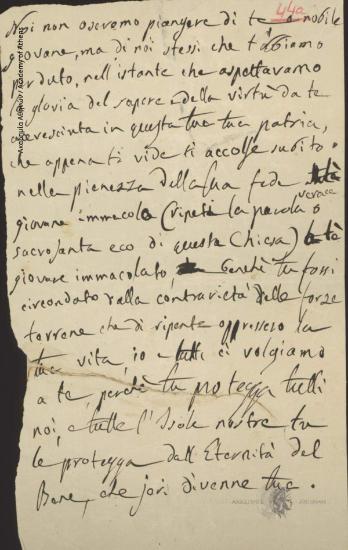 44a
Noi non oseremo piangere di te o nobile
giovane, ma di noi stessi che t'abbiamo
perduto, nell'istante che aspettavamo
la gloria del sapere e della virtù da te
accresciuta in questa tua patria,
che appena ti vide ti accolse subito
nella pienezza della sua fede verace
giovane immacolato (ripeti la parola o
sacrosanta eco di questa Chiesa) a te
giovane immacolato, benchè tu fossi
circondato dalla contrarietà delle forze
terrene che di repente oppressero la
tua vita, io e tutti ci volgiamo
a te, perchè tu protegga tutti
noi, e tutte l'Isole nostre tu
le protegga dall'Eternità del
Bene, che jeri divenne tua.
Ακαδημία Αθηνών / Academy of Athens